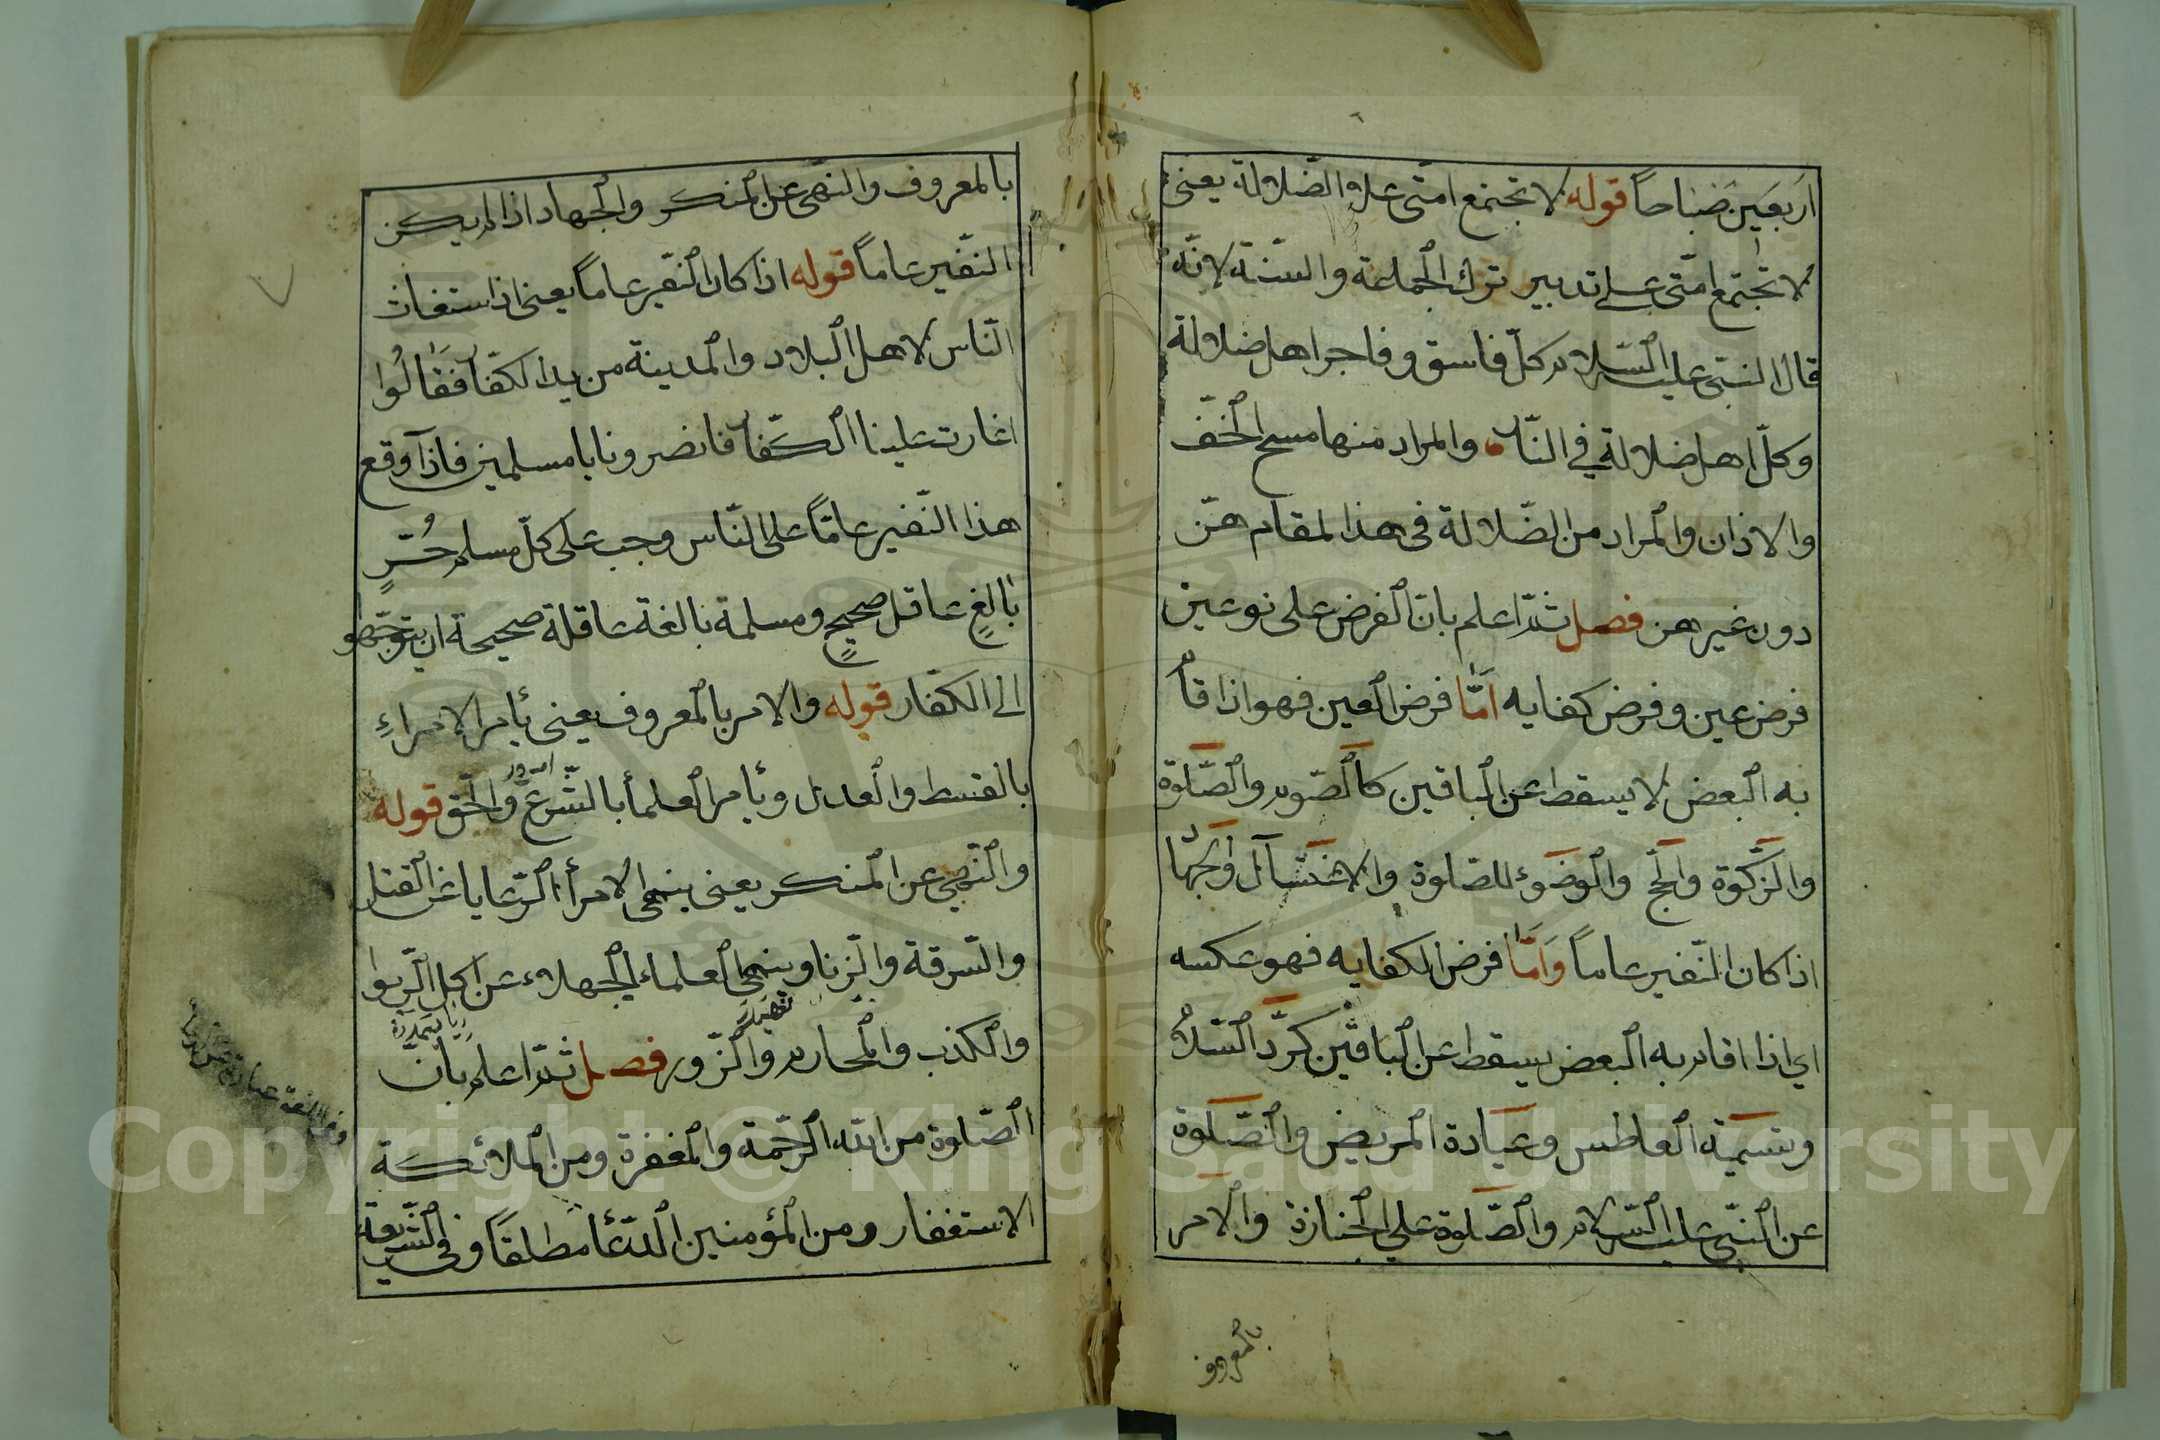 اربعين صباحاً قوله لا تجتمع امتى على الضلالة يعنى
لا تجتمع امتى على تدبير ترك الجماعة والسنة لانه
قال النبى عليه السلام كل فاسق وفاجر اهل ضلالة
وكل اهل ضلالة في النار والمراد منها مسح الخف
والاذان والمراد من الضلالة فى هذا المقام هن
دون غيرهن فصل ثم اعلم بان الفرض على نوعين
فرض عين وفرض كفايه امّا فرض العين فهو اذا قام
به البعض لا يسقط عن الباقين كالصوم والصلوة
والزكوة والحج والوضوء للصلوة والاغتسال والجهاد
اذا كان النفير عاماً وامّا فرض الكفايه فهو عكسه
اي اذا اقام به البعض يسقط عن الباقين كردّ السلام
وتسمية العاطس وعيادة المريض والصلوة
عن النبي عليه السلام والصلوة على الجنازة والامر
بالمعروف
بالمعروف والنهى عن المنكر والجهاد اذا لم يكن
النفير عاماً قوله اذا كان النفير عاماً يعنى اذا ستغاث
الناس لاهل البلاد والمدينة من يد الكفار فقالُوا
اغارت علينا الكفار فانصرونا يا مسلمين فاذا وقع
هذا النفير عامّاً على الناس وجب على كلّ مسلم حُرٍّ
بالغٍ عاقل صحيحٍ ومسلمة بالغة عاقلة صحيحة ان يتوجّهو
الى الكفار قوله والامر بالمعروف يعنى يأمر الامراءِ
بالقسط والعدل ويأمر العلمأ بالشرع والحق قوله
امور
والنهي عن المنكر يعنى ينهى الامرأ الرعايا عن القتل
والسرقة والزنا وينهى العلماء الجهلاء عن اكل الربوا
والكذب والمحارم والزور فصل ثم اعلم بان
الصلوة من الله الرحمة والمغفرة ومن الملائكة
الاستغفار ومن المؤمنين الدعأ مطلقاً وفى الشريعة
وفى اللغة عبارة عن
Copyright © King Saud University
1957